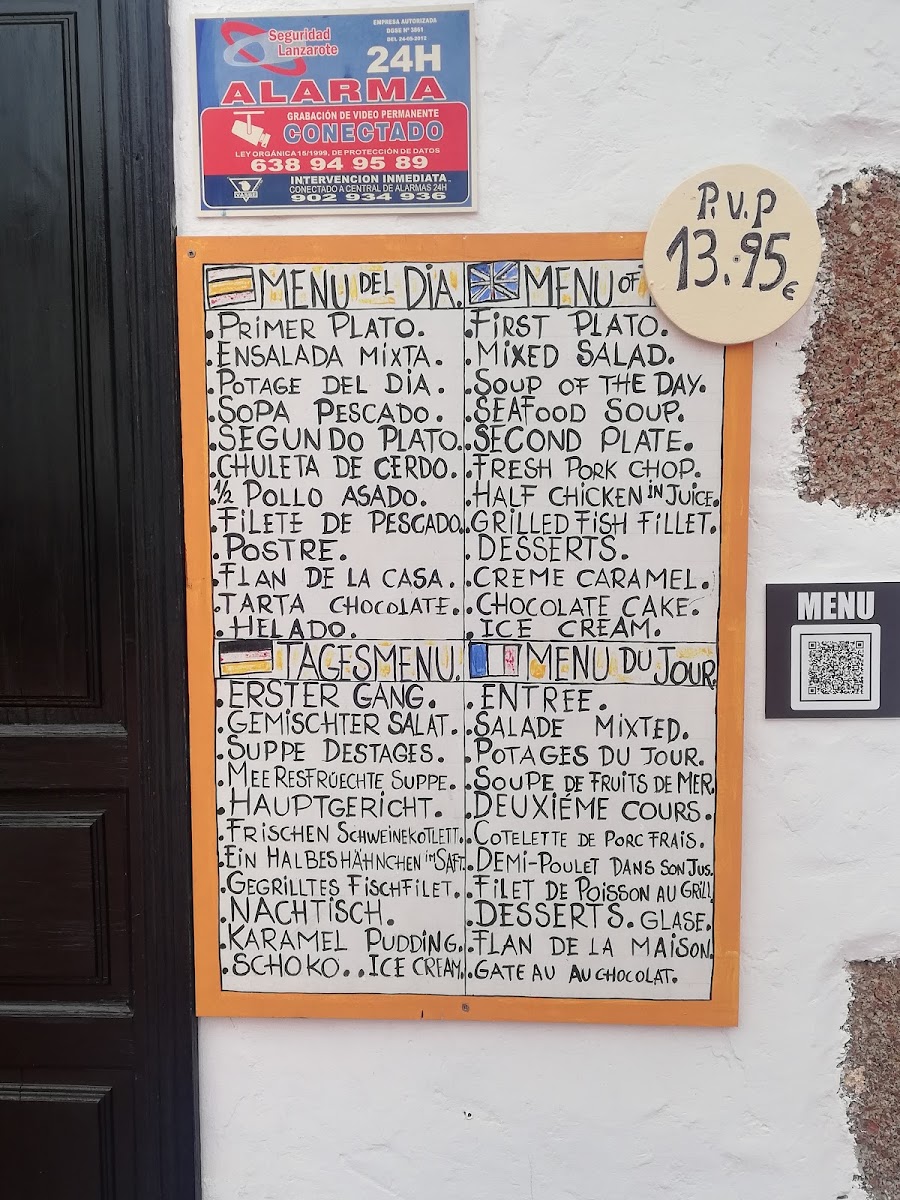 Seguridad
Lanzarote
EMPRESA AUTORIZADA
DGSE Nº 3851
DEL 24-05-2012
24H
ALARMA
GRABACIÓN DE VIDEO PERMANENTE
CONECTADO
LEY ORGÁNICA 15/1999, DE PROTECCIÓN DE DATOS
638 94 95 89
INTERVENCION INMEDIATA
CONECTADO A CENTRAL DE ALARMAS 24H
902 934 936
P.V.P
13.95€
MENU DEL DIA.
.PRIMER PLATO.
.ENSALADA MIXTA.
.POTAGE DEL DIA.
.SOPA PESCADO.
.SEGUNDO PLATO.
.CHULETA DE CERDO.
.½ POLLO ASADO.
.FILETE DE PESCADO.
.POSTRE.
.FLAN DE LA CASA.
.TARTA CHOCOLATE.
.HELADO.
MENU OF
.FIRST PLATO.
.MIXED SALAD.
.SOUP OF THE DAY.
.SEAFOOD SOUP.
.SECOND PLATE.
.FRESH PORK CHOP.
.HALF CHICKEN IN JUICE.
.GRILLED FISH FILLET.
.DESSERTS.
.CREME CARAMEL.
.CHOCOLATE CAKE.
.ICE CREAM.
TAGESMENU.
.ERSTER GANG.
.GEMISCHTER SALAT.
.SUPPE DESTAGES.
.MEERESFRÜECHTE SUPPE.
.HAUPTGERICHT.
.FRISCHEN SCHWEINEKOTLETT.
.EIN HALBES HÄHNCHEN IM SAFT.
.GEGRILLTES FISCHFILET.
.NACHTISCH.
.KARAMEL PUDDING.
.SCHOKO..ICE CREAM.
MENU DU JOUR.
.ENTREE.
.SALADE MIXTED.
.POTAGES DU JOUR.
.SOUPE DE FRUITS DE MER.
.DEUXIÉME COURS.
.COTELETTE DE PORC FRAIS.
.DEMI-POULET DANS SON JUS.
.FILET DE POISSON AU GRILL
.DESSERTS. GLASE.
.FLAN DE LA MAISON.
.GATEAU AU CHOCOLAT.
MENU